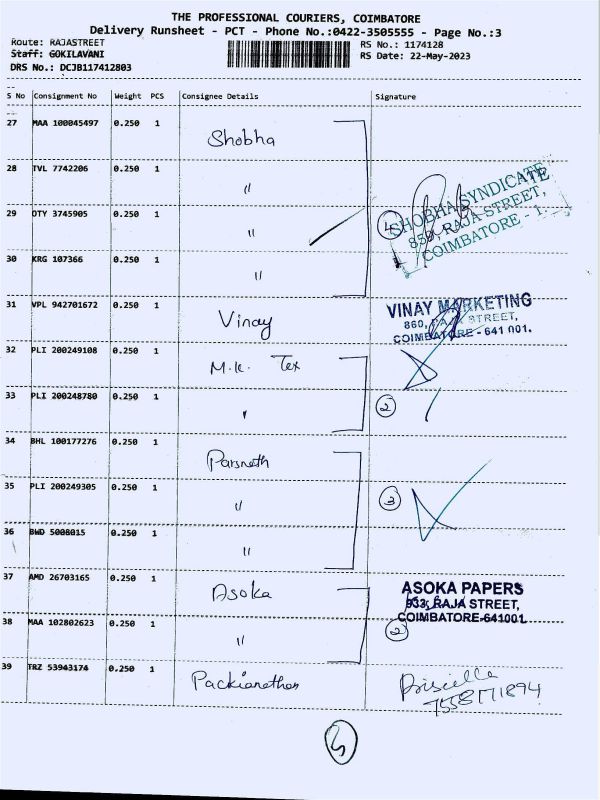 THE PROFESSIONAL COURIERS, COIMBATORE
Delivery Runsheet - PCT - Phone No.:0422-3505555 - Page No.:3
Route: RAJASTREET
Staff: GOKILAVANI
DRS No.: DCJB117412803
RS No.: 1174128
RS Date: 22-May-2023
S No Consignment No Weight PCS Consignee Details Signature
27 MAA 100045497 0.250 1 Shobha
28 TVL 7742206 0.250 1 "
29 OTY 3745905 0.250 1 "
4
SHOBHA SYNDICATE
859, RAJA STREET,
COIMBATORE - 1.
30 KRG 107366 0.250 1 "
31 VPL 942701672 0.250 1 Vinay
VINAY MARKETING
860, RAJA STREET,
COIMBATORE - 641 001.
32 PLI 200249108 0.250 1 M.K. Tex
33 PLI 200248780 0.250 1 "
2
34 BHL 100177276 0.250 1 Parsnath
35 PLI 200249305 0.250 1 "
3
36 BWD 5008015 0.250 1 "
37 AMD 26703165 0.250 1 Asoka
ASOKA PAPERS
933, RAJA STREET,
COIMBATORE-641001
38 MAA 102802623 0.250 1 "
2
39 TRZ 53943174 0.250 1 Packianathan
Priscilla
7558171894